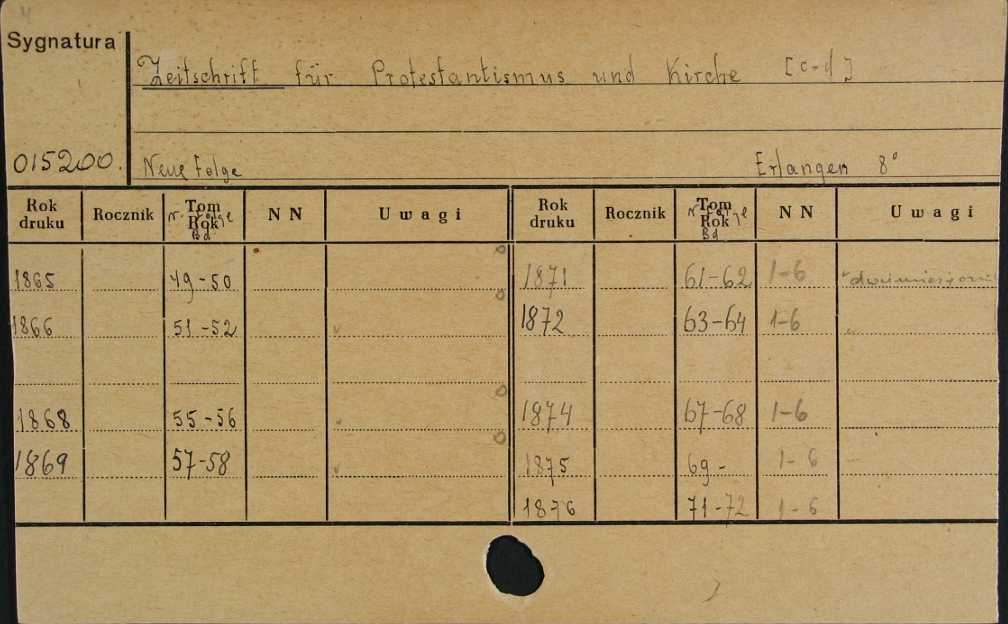 Sygnatura
Zeitschrift für Protestantismus und Kirche [c-d]
015200. Neue Folge Erlangen 8°
Rok druku Rocznik Tom Rok N. Folge Bd NN Uwagi Rok druku Rocznik Tom Rok N. Folge Bd NN Uwagi
1865 49-50 1871 61-62 1-6 dwumiesięcznik
1866 51-52 1872 63-64 1-6 "
1868 55-56 1874 67-68 1-6
1869 57-58 1875 69- 1-6
1876 71-72 1-6